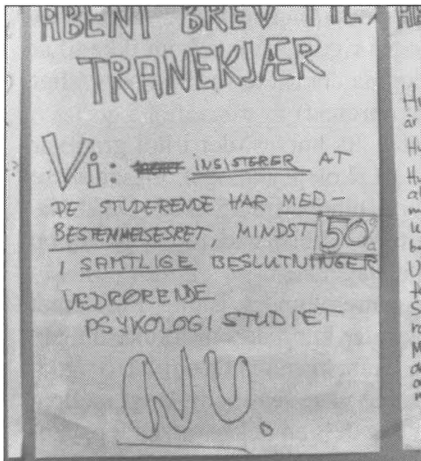 ÅBENT BREV TIL
TRANEKJÆR
Vi: INSISTERER AT
DE STUDERENDE HAR MED-
BESTEMMELSESRET, MINDST 50%
I SAMTLIGE BESLUTNINGER
VEDRØRENDE
PSYKOLOGISTUDIET
NU.